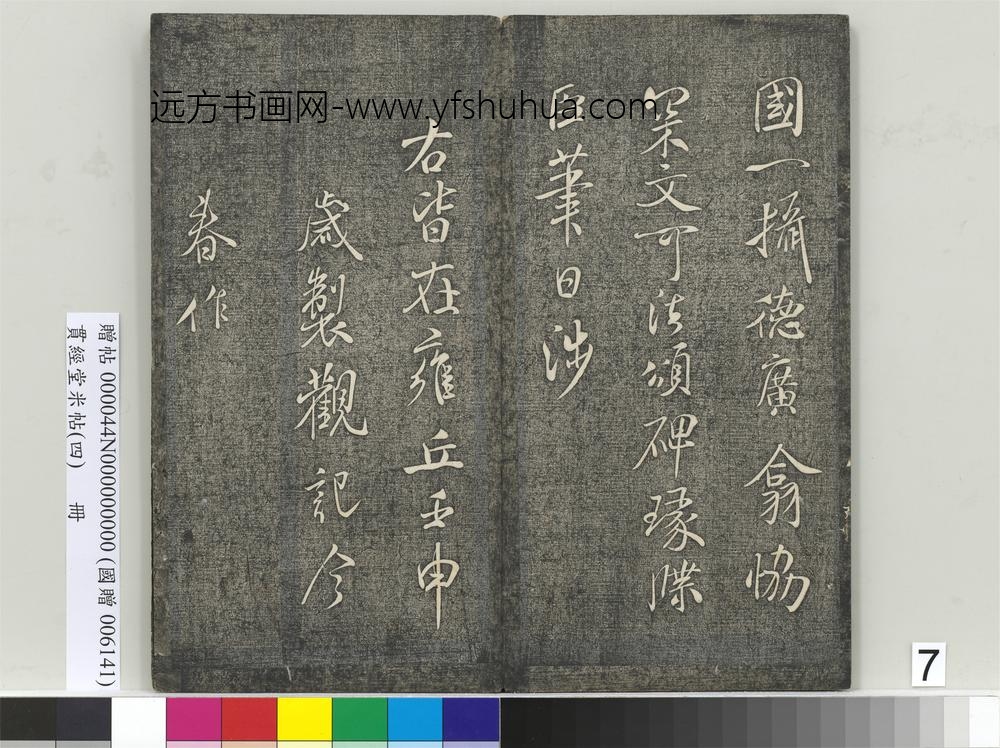 國一攝德廣翕協
策文可法頌碑瑑牒
臣筆日涉
右皆在雍丘壬申
歲製觀記今
春作
远方书画网-www.yfshuhua.com
贈帖 000044N000000000 (國贈 006141)
貫經堂米帖(四) 冊
7